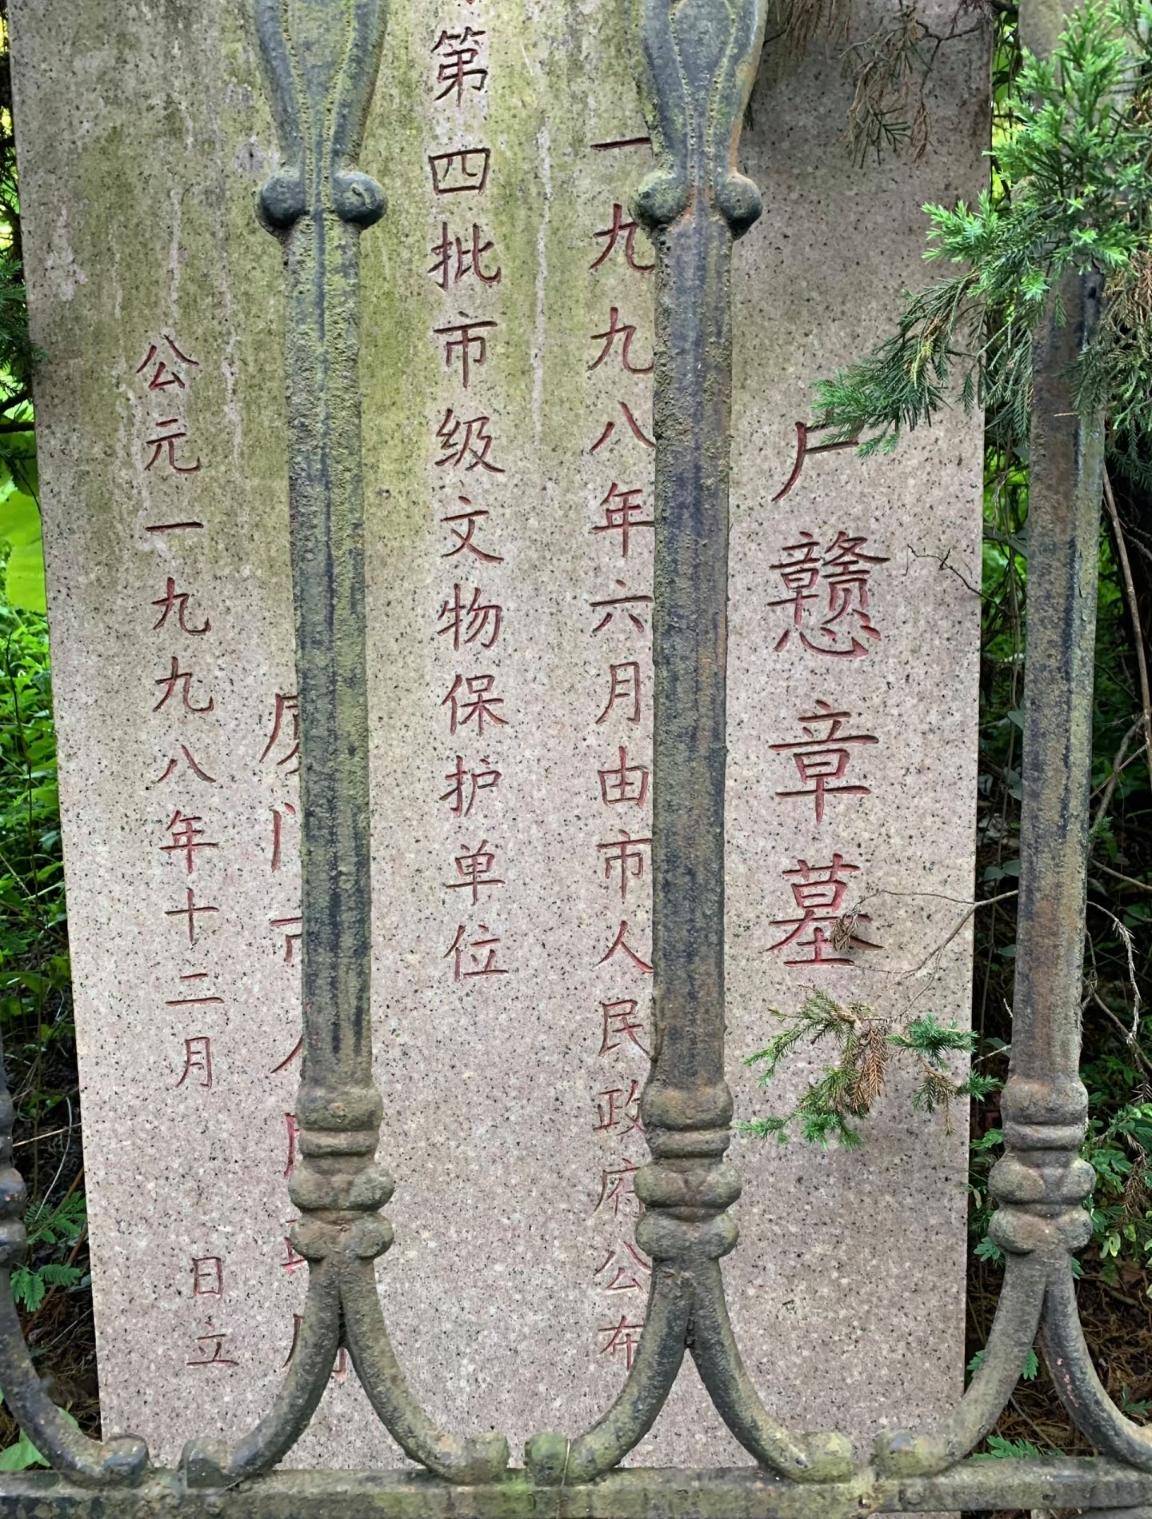 卢戆章墓
一九九八年六月由市人民政府公布
第四批市级文物保护单位
厦门市人民政府
公元一九九八年十二月 日立